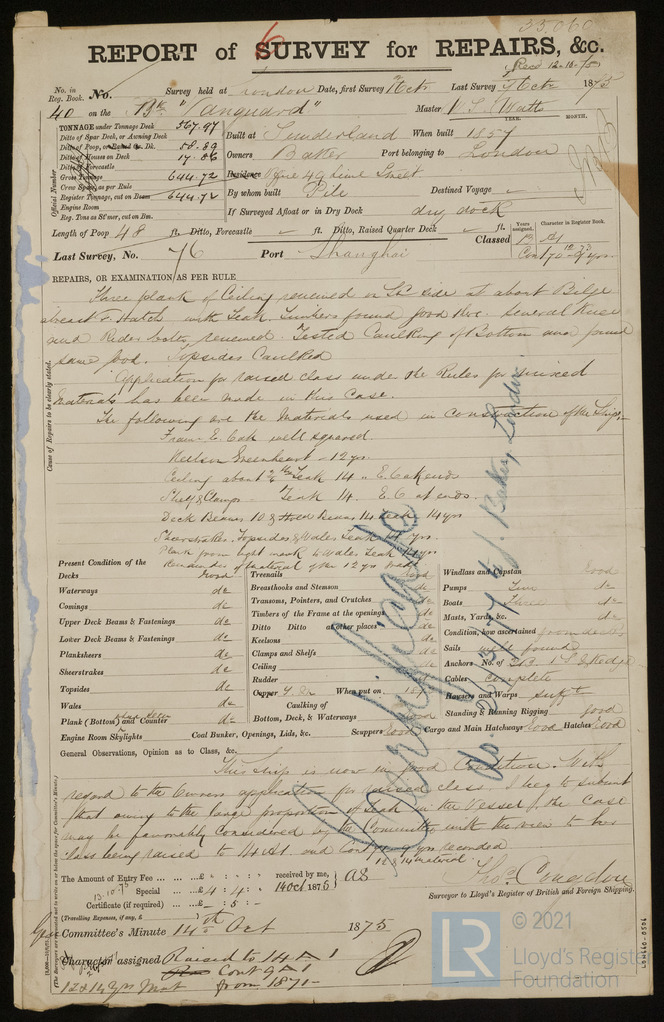 33,060
REPORT of SURVEY for REPAIRS, &c.
Recd 12-10-75
No. in Reg. Book. No. Survey held at London Date, first Survey Octr Last Survey Octr 1875
40 on the Bk "Vanguard" Master Watts
TONNAGE under Tonnage Deck 567.97
Ditto of Spar Deck, or Awning Deck
Ditto of Poop, or Raised Qr. Dk. 58.89
Ditto of Houses on Deck 17.86
Ditto of Forecastle
Gross Tonnage 644.72
Crew Space, as per Rule
Register Tonnage, cut on Beam 644.72
Engine Room
Reg. Tons as St'mer, cut on Bm.
Official Number
Built at Sunderland When built 1857
YEAR. MONTH.
Owners Baker Port belonging to London
Residence 49 Lime Street
By whom built Pile Destined Voyage
If Surveyed Afloat or in Dry Dock dry dock
Length of Poop 48 ft. Ditto, Forecastle ft. Ditto, Raised Quarter Deck ft.
Classed Years assigned. Character in Register Book.
Last Survey, No. 76 Port Shanghai
REPAIRS, OR EXAMINATION AS PER RULE
Three plank of Ceiling renewed on side at about Bilge
abreast F. Hatch with Teak. Timbers found good there. Several Knee
and Rider bolts renewed. Tested Caulking of Bottom and found
same good. Topsides Caulked
Application for raised class under the Rules for mixed
materials has been made in this case.
The following are the Materials used in Construction of the Ship,
Frame E. Oak well squared.
Keelson Greenheart - 12 yrs.
Ceiling about Teak 14 E. Oak ends
Shelf & Clamps - Teak 14. E. O at ends.
Deck Beams 10 & Hold Beams 14 Teak - 14 yrs
Sheerstrakes, Topsides & Wales Teak 14 yrs.
Plank from light mark to Wales Teak 14 yrs
Remainder of material of the 12 years grade
Cause of Repairs to be clearly stated.
Present Condition of the
Decks good
Waterways do
Comings do
Upper Deck Beams & Fastenings do
Lower Deck Beams & Fastenings do
Planksheers do
Sheerstrakes do
Topsides do
Wales do
Plank (Bottom) and Counter do
Engine Room Skylights
Treenails good
Breasthooks and Stemson do
Transoms, Pointers, and Crutches do
Timbers of the Frame at the openings do
Ditto Ditto at other places do
Keelsons do
Clamps and Shelfs do
Ceiling
Rudder
Copper When put on 187
Caulking of
Bottom, Deck, & Waterways good
Coal Bunker, Openings, Lids, &c. Scuppers good Cargo and Main Hatchways good Hatches good
Windlass and Capstan good
Pumps do
Boats do
Masts, Yards, &c. do
Condition, how ascertained from deck
Sails well found
Anchors No. of
Cables complete
Hawsers and Warps sufft
Standing & Running Rigging good
Certificate
to J. Baker, London
General Observations, Opinion as to Class, &c.
This ship is now in good Condition. With
regard to the Owners application for raised class I beg to submit
that owing to the large proportion of teak in the Vessel, the case
may be favorably considered by the Committee with the view to her
class being raised to 14 A1 and Contg yrs recorded
12 & 14 material
The Amount of Entry Fee ... £ : : received by me,
13.10.75 Special ... £ 4 : 4 : 14 Oct 1875
Certificate (if required) ... £ - : 5 : -
(Travelling Expenses, if any, £ )
Thos. Congdon
Surveyor to Lloyd's Register of British and Foreign Shipping.
Committee's Minute 14th Oct 1875
Character assigned Raised to 14 A 1
Cont 9 A 1
12 & 14 Yrs Mat from 1871-
LR
© 2021
Lloyd's Register
Foundation